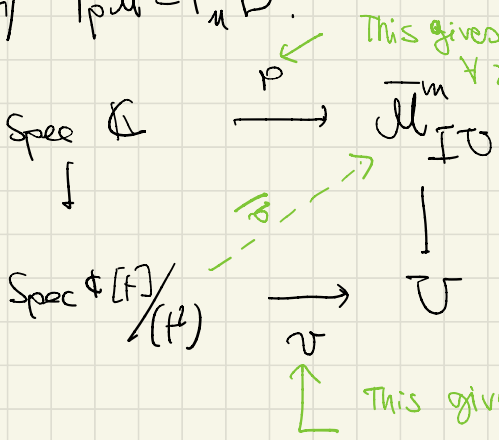 This gives
∀
p
Spec ℂ → M̄^m_{IU}
Spec ℂ[t]/(t²) → U
v
This give